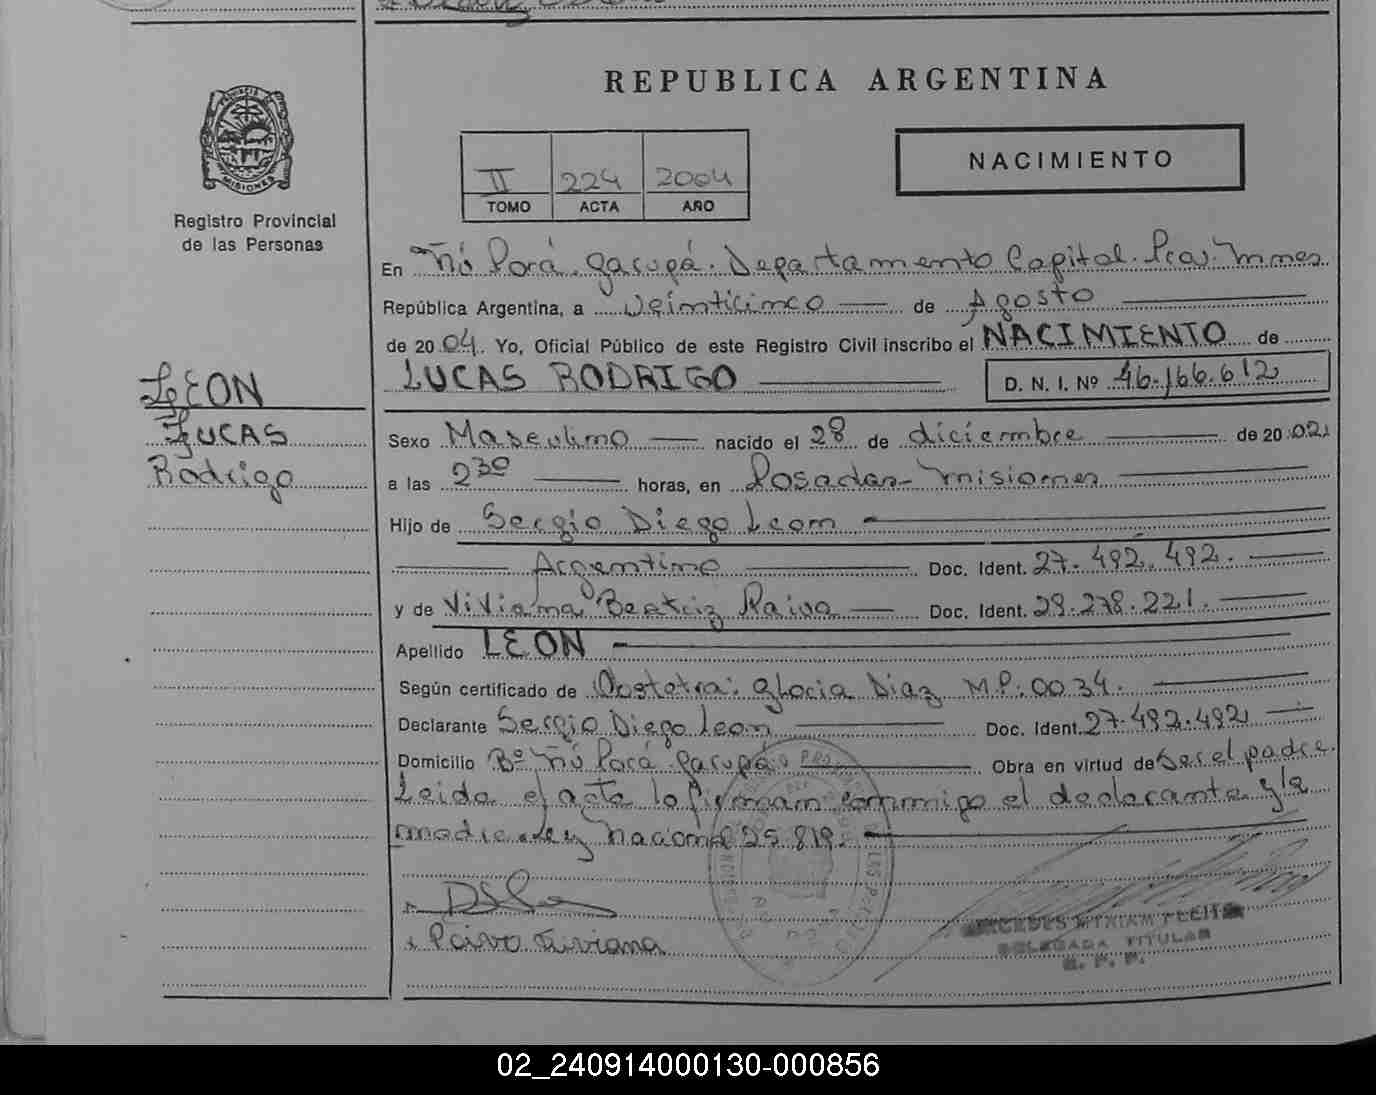 REPUBLICA ARGENTINA
NACIMIENTO
PROVINCIA DE
MISIONES
Registro Provincial
de las Personas
II 224 2004
TOMO ACTA AÑO
En Ñú Porá. Garupá. Departamento Capital. Pcia. Mnes.
República Argentina, a veinticinco de Agosto
de 2004. Yo, Oficial Público de este Registro Civil inscribo el NACIMIENTO de
LUCAS RODRIGO D. N. I. Nº 46.166.612
LEON
LUCAS
Rodrigo
Sexo Masculino nacido el 28 de diciembre de 20 02
a las 2 30 horas, en Posadas - Misiones
Hijo de Sergio Diego Leon
Argentino Doc. Ident. 27.492.492.
y de Viviana Beatriz Paiva Doc. Ident. 29.278.221.
Apellido LEON
Según certificado de Obstetra: Gloria Diaz M.P. 0034.
Declarante Sergio Diego Leon Doc. Ident. 27.492.492
Domicilio Bº Ñú Porá Garupá Obra en virtud de Ser el padre.
Leida el acta la firman conmigo el declarante y la
madre. Ley Nacional 25.819.
Paiva Viviana
DELEGADA TITULAR
02_240914000130-000856